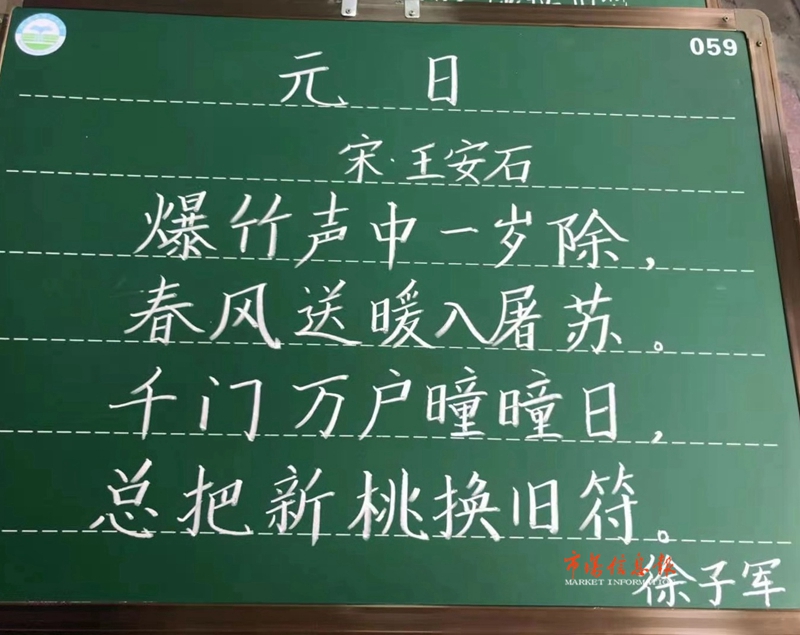 059
元日
宋·王安石
爆竹声中一岁除，
春风送暖入屠苏。
千门万户曈曈日，
总把新桃换旧符。
市场信息报
MARKET INFORMATION
徐子军